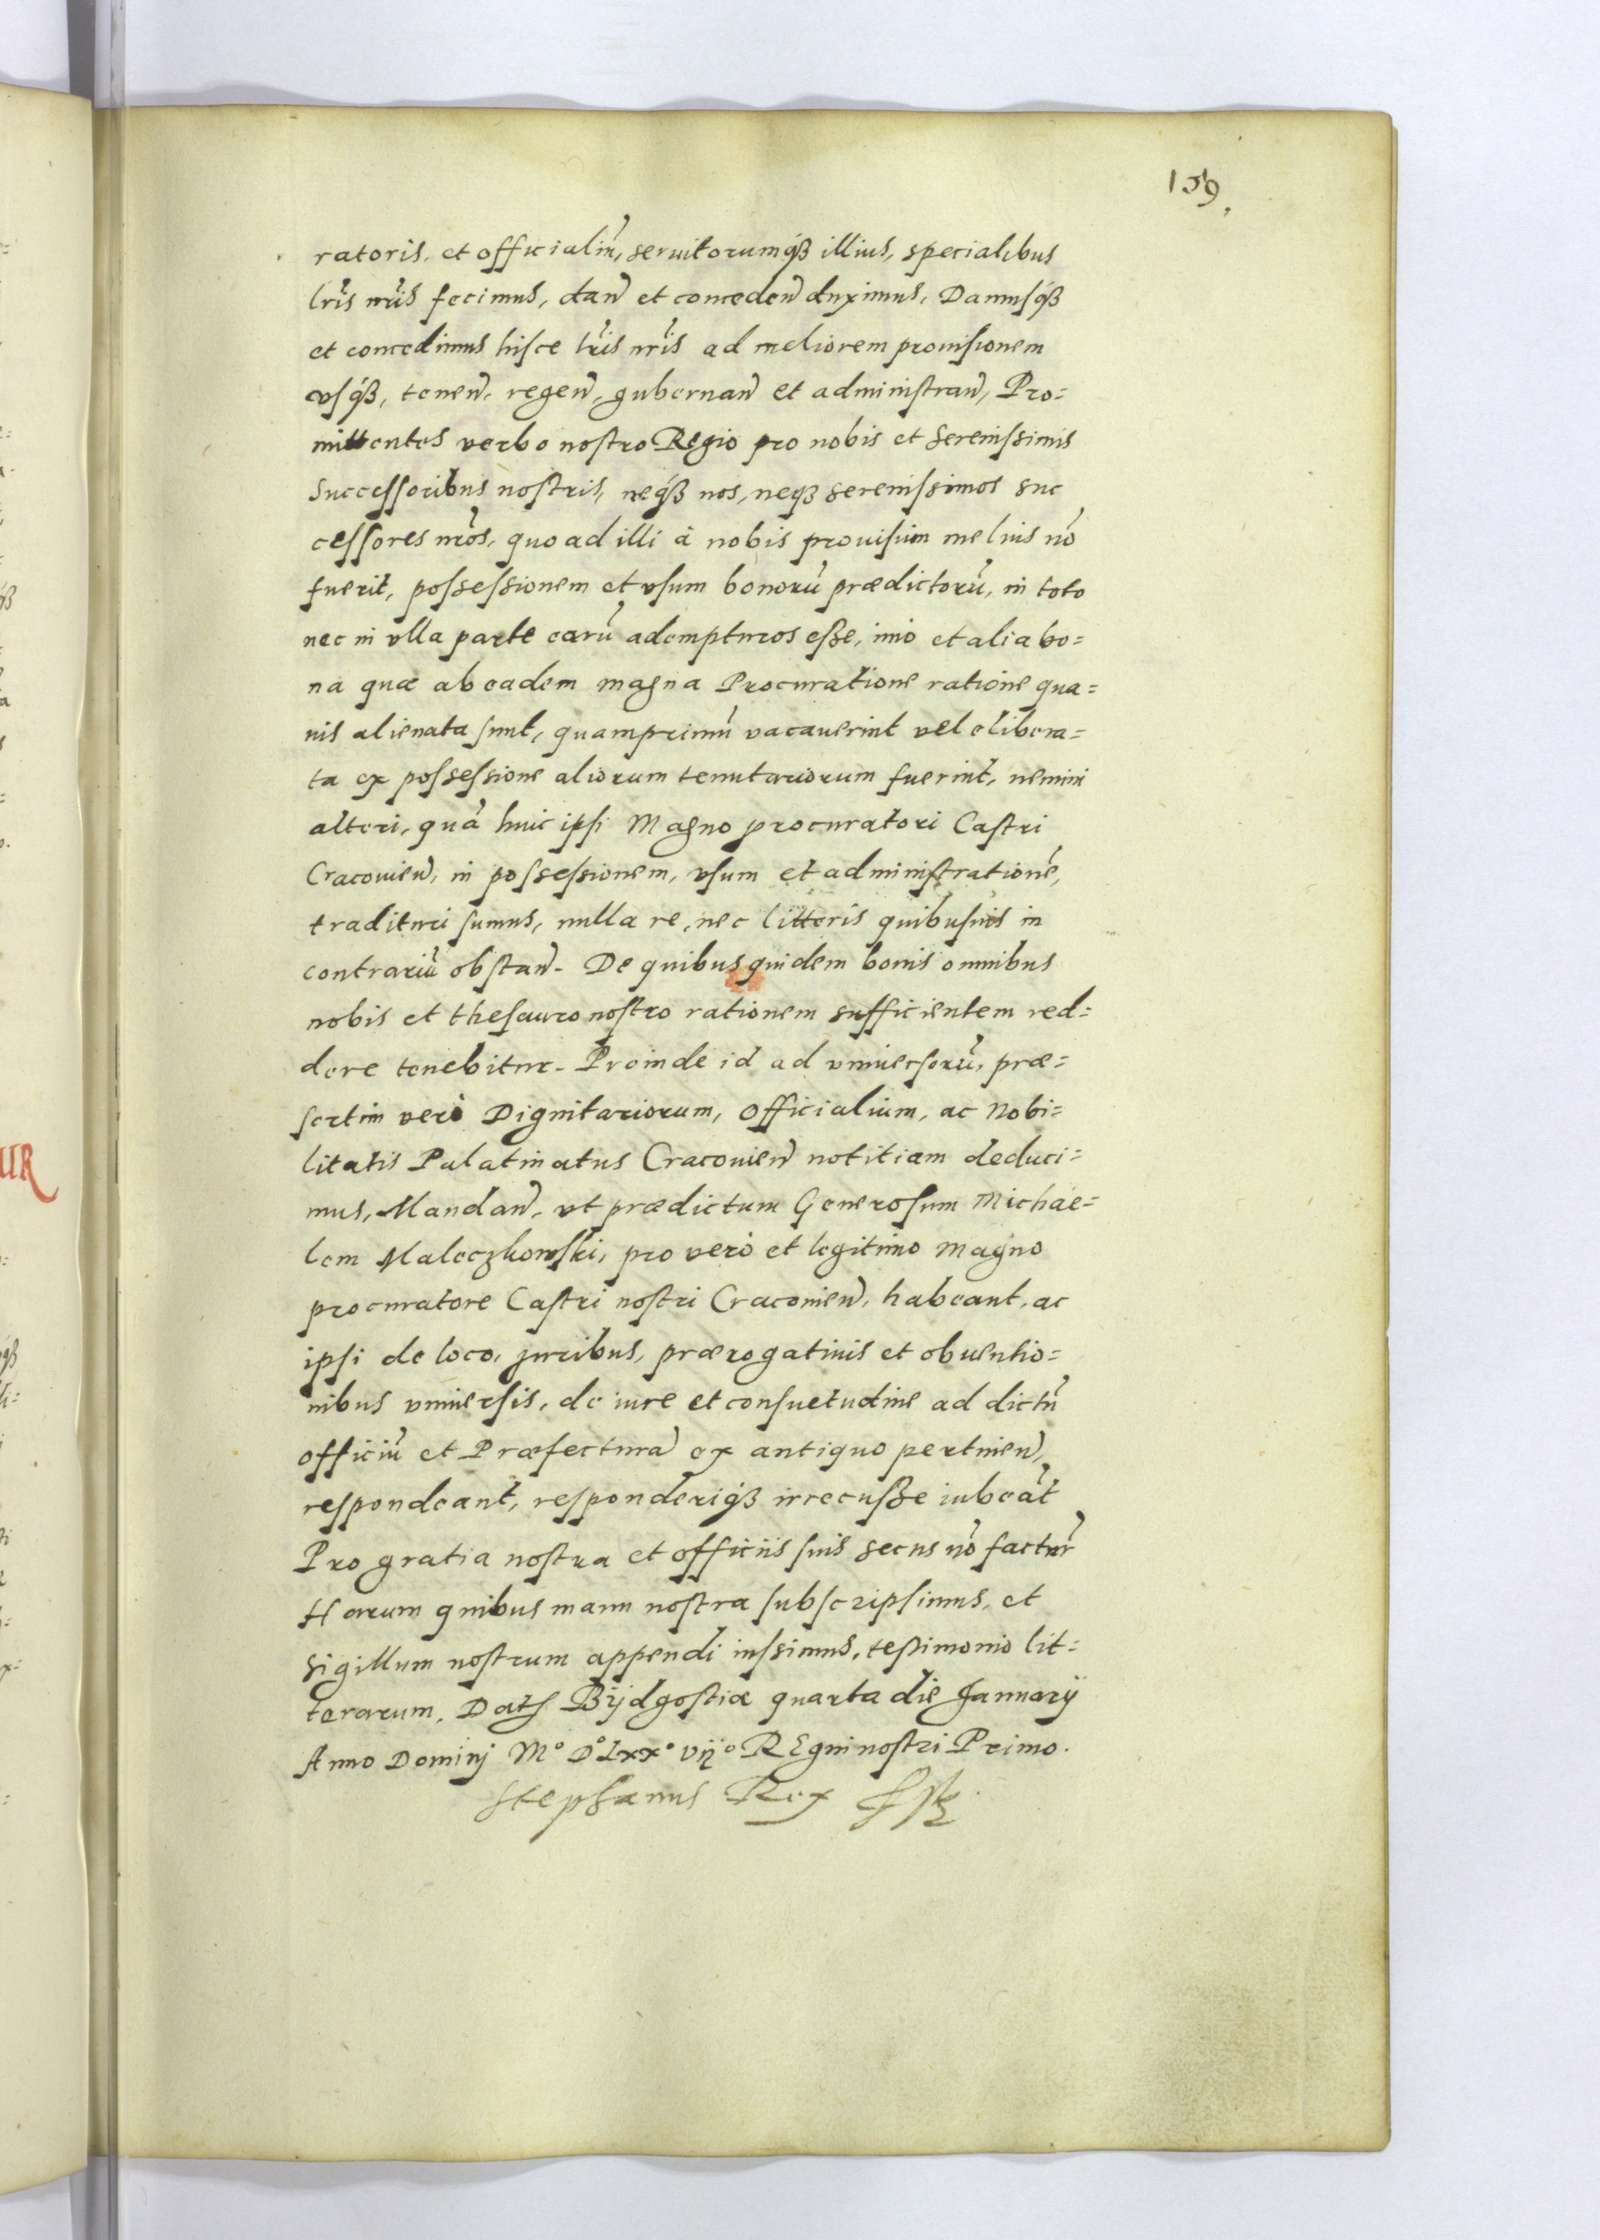 159.
ratoris, et officialiũ, seruitorumq́ꝫ illius, specialibus
lr̃is nr̃is fecimus, dañ et conceden̄ duximus, Damusq́ꝫ
et concedimus hisce lr̃is nr̃is ad meliorem prouisionem
vsq́ꝫ, tenen̄, regen̄, gubernan̄ et administran̄, Pro=
mittentes verbo nostro Regio pro nobis et Serenissimis
Successoribus nostris, neq́ꝫ nos, neqꝫ serenissimos suc
cessores nr̃os, quoad illi à nobis prouisum melius nõ
fuerit, possessionem et vsum bonorũ prædictorũ, in toto
nec in vlla parte earũ adempturos esse, imo et alia bo=
na quæ ab eadem magna Procuratione ratione qua=
uis alienata sunt, quamprimũ vacauerint vel elibera=
ta ex possessione aliorum tenutariorum fuerint, nemini
alteri, quã huic ipsi Magno procuratori Castri
Cracouien̄, in possessionem, vsum et administrationẽ,
tradituri sumus, nulla re, nec litteris quibusuis in
contrariũ obstan̄. De quibus quidem bonis omnibus
nobis et thesauro nostro rationem sufficientem red=
dere tenebitur. Proinde id ad vniuersorũ, præ=
sertim verò Dignitariorum, Officialium, ac Nobi=
litatis Palatinatus Cracouien̄ notitiam deduci=
mus, Mandan̄, vt prædictum Generosum Michae=
lem Maleczkowski, pro vero et legitimo Magno
procuratore Castri nostri Cracouien̄, habeant, ac
ipsi de loco, juribus, prærogatiuis et obuentio=
nibus vniuersis, de iure et consuetudine ad dictũ
officiũ et Præfecturã ex antiquo pertinen̄,
respondeant, responderiq́ꝫ irrecusse iubeãt
Pro gratia nostra et officiis suis secus nõ facturi
Harum quibus manu nostra subscripsimus, et
sigillum nostrum appendi iussimus, testimonio lit=
terarum. Datꝭ Bÿdgostiæ quarta die Januarÿ
Anno Dominj M° D° Lxx° vij° REgni nostri Primo.
Stephanus Rex